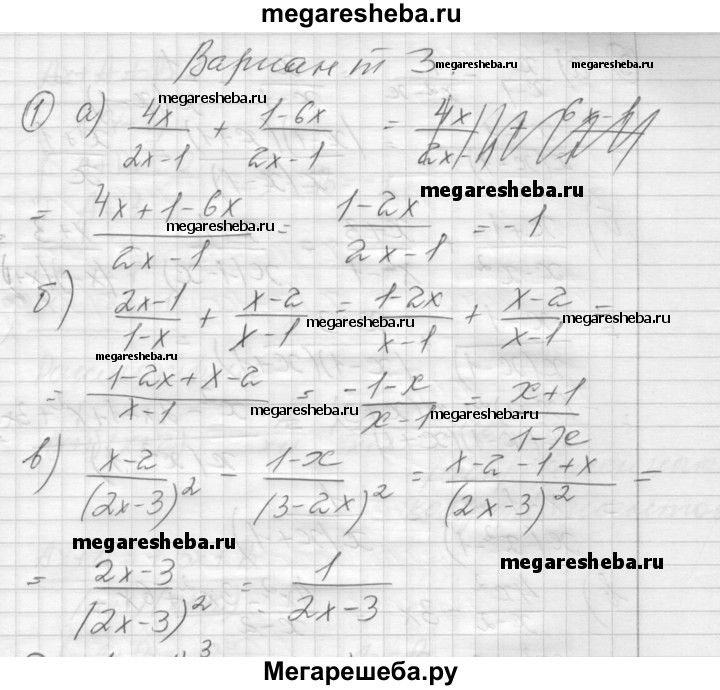 megaresheba.ru
Вариант 3. megaresheba.ru megaresheba.ru
megaresheba.ru
① а) 4x/(2x-1) + (1-6x)/(2x-1) = 4x/(2x-1)
megaresheba.ru
= (4x+1-6x)/(2x-1) = (1-2x)/(2x-1) = -1
megaresheba.ru
б) (2x-1)/(1-x) + (x-2)/(x-1) = (1-2x)/(x-1) + (x-2)/(x-1) =
megaresheba.ru megaresheba.ru
megaresheba.ru
= (1-2x+x-2)/(x-1) = (-1-x)/(x-1) = (x+1)/(1-x)
megaresheba.ru megaresheba.ru
в) (x-2)/(2x-3)² - (1-x)/(3-2x)² = (x-2-1+x)/(2x-3)² =
megaresheba.ru megaresheba.ru
= (2x-3)/(2x-3)² = 1/(2x-3)
Мегарешеба.ру